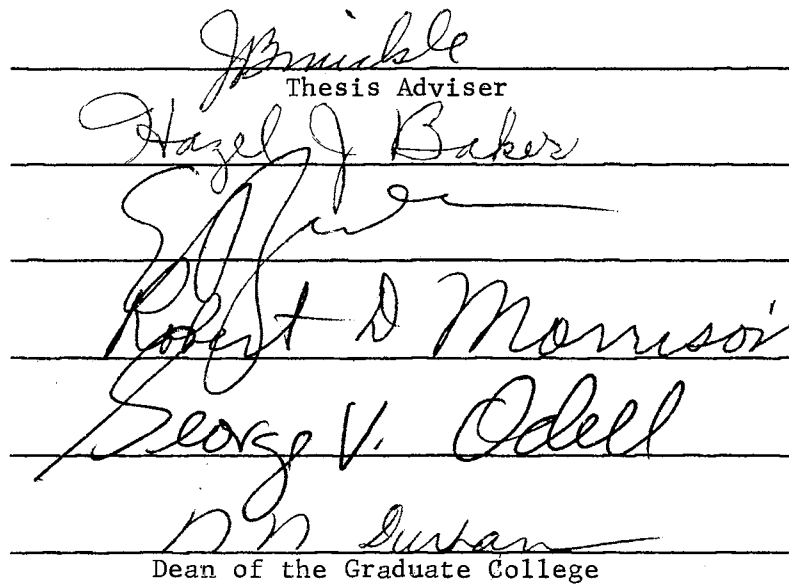 Thesis Adviser
Hazel J Baker
Robert D Morrison
George V. Odell
N N Durham
Dean of the Graduate College